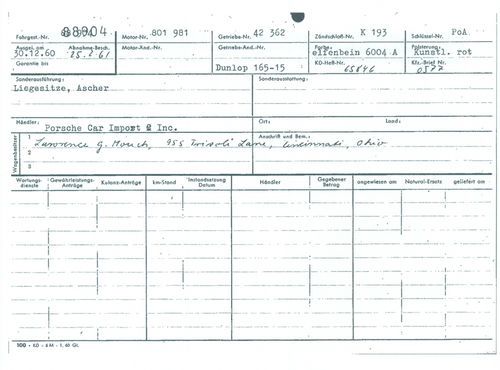 Fahrgest.-Nr. 88904 Motor-Nr. 801 981 Getriebe-Nr. 42 362 Zündschloß-Nr. K 193 Schlüssel-Nr. PoA
Ausgel. am Abnahme-Besch. Motor-Änd.-Nr. Getriebe-Änd.-Nr. Farbe: Polsterung:
30.12.60 25.2.61 elfenbein 6004 A Kunstl. rot
Garantie bis KD-Heft-Nr. Kfz.-Brief Nr.
Dunlop 165-15 65646 0577
Sonderausführung: Sonderausstattung:
Liegesitze, Ascher
Händler: Ort: Land:
Porsche Car Import Inc.
Wagenbesitzer Anschrift und Bem.:
1 Lawrence G. 955 Lane, Cincinnati, Ohio
2
3
Wartungs-dienste Gewährleistungs-Anträge Kulanz-Anträge km-Stand Instandsetzung Datum Händler Gegebener Betrag angewiesen am Natural-Ersatz geliefert am
100 - KD - 6 M - 1. 60 Gt.